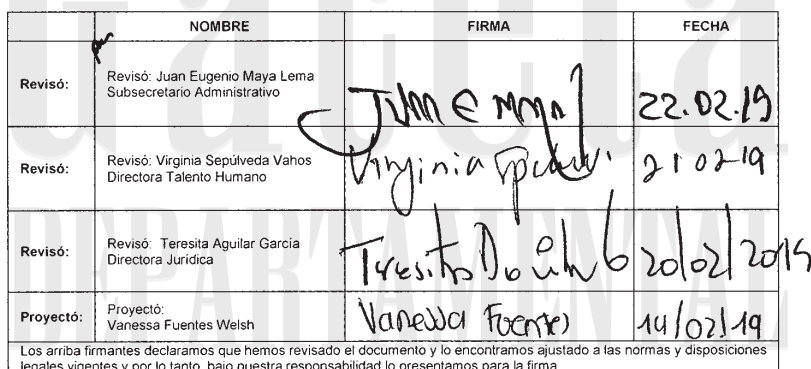 Gaceta
DEPARTAMENTAL
NOMBRE FIRMA FECHA
Revisó: Revisó: Juan Eugenio Maya Lema
Subsecretario Administrativo
22.02.19
Revisó: Revisó: Virginia Sepúlveda Vahos
Directora Talento Humano
Virginia
21 02-19
Revisó: Revisó: Teresita Aguilar García
Directora Jurídica
Teresita
20/02/2019
Proyectó: Proyectó:
Vanessa Fuentes Welsh
Vanessa Fuentes 14/02/19
Los arriba firmantes declaramos que hemos revisado el documento y lo encontramos ajustado a las normas y disposiciones
legales vigentes y por lo tanto, bajo nuestra responsabilidad lo presentamos para la firma